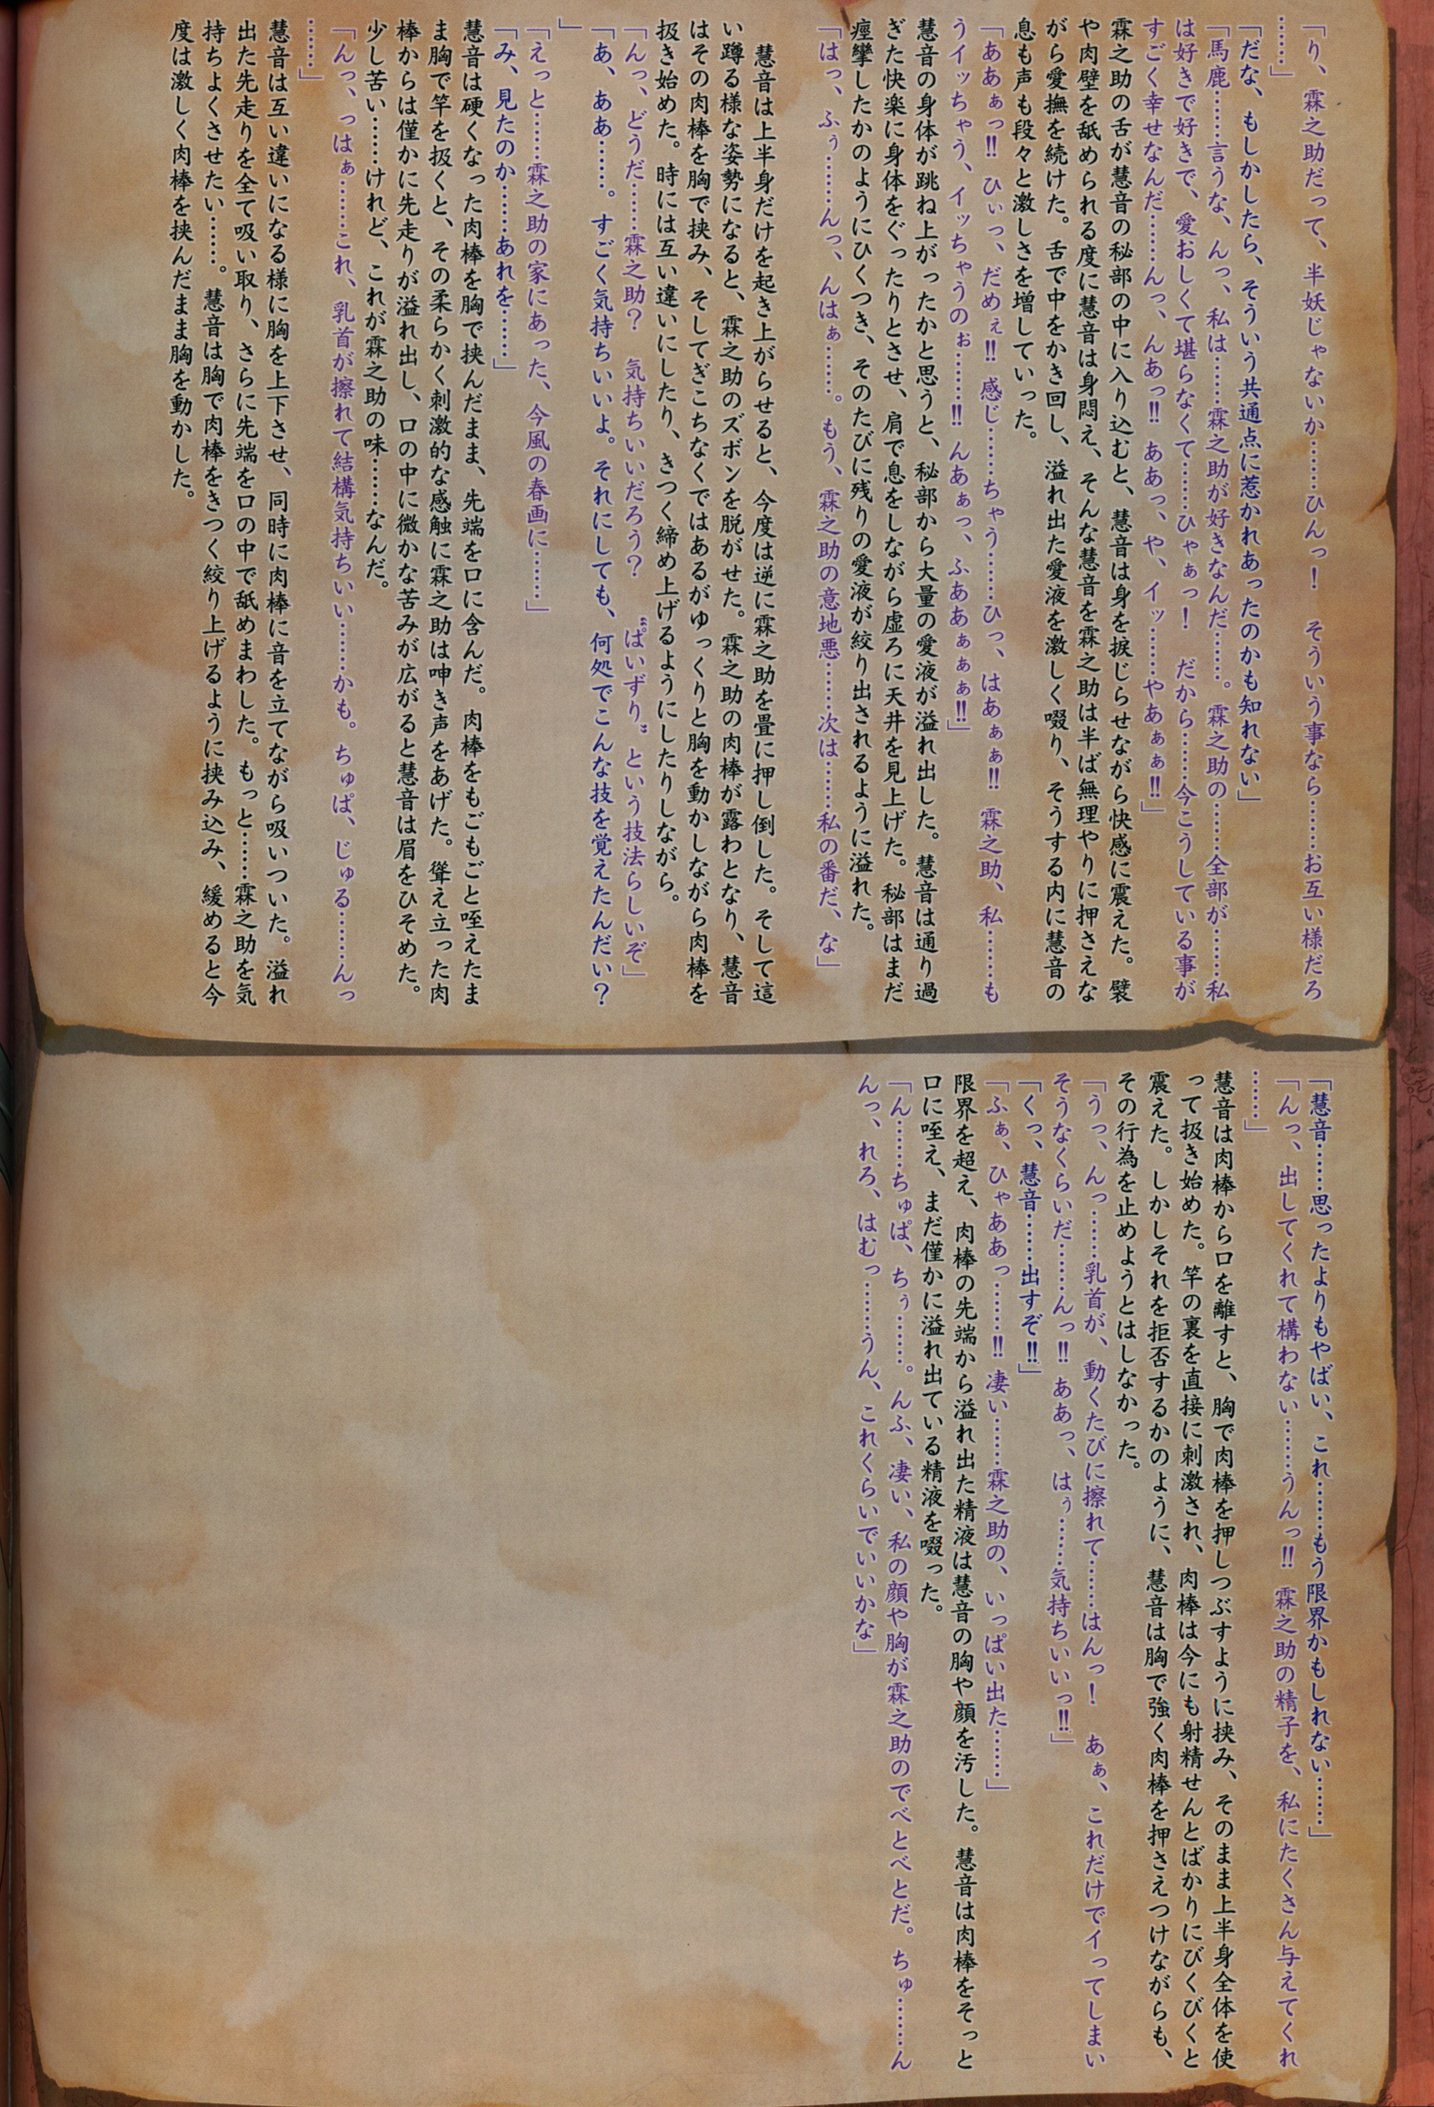 「り、霖之助だって、半妖じゃないか……ひんっ！　そういう事なら……お互い様だろ
……」
「だな、もしかしたら、そういう共通点に惹かれあったのかも知れない」
「馬鹿……言うな、んっ、私は……霖之助が好きなんだ……。霖之助の……全部が……私
は好きで好きで、愛おしくて堪らなくて……ひゃぁっ！　だから……今こうしている事が
すごく幸せなんだ……んっ、んあっ‼ ああっ、や、イッ……やあぁぁ‼」
霖之助の舌が慧音の秘部の中に入り込むと、慧音は身を捩じらせながら快感に震えた。襞
や肉壁を舐められる度に慧音は身悶え、そんな慧音を霖之助は半ば無理やりに押さえな
がら愛撫を続けた。舌で中をかき回し、溢れ出た愛液を激しく啜り、そうする内に慧音の
息も声も段々と激しさを増していった。
「ああぁっ‼ ひぃっ、だめぇ‼ 感じ……ちゃう……ひっ、はあぁぁ‼ 霖之助、私……も
うイッちゃう、イッちゃうのぉ……‼ んあぁっ、ふああぁぁぁぁ‼」
慧音の身体が跳ね上がったかと思うと、秘部から大量の愛液が溢れ出した。慧音は通り過
ぎた快楽に身体をぐったりとさせ、肩で息をしながら虚ろに天井を見上げた。秘部はまだ
痙攣したかのようにひくつき、そのたびに残りの愛液が絞り出されるように溢れた。
「はっ、ふぅ……んっ、んはぁ……。もう、霖之助の意地悪……次は……私の番だ、な」
　慧音は上半身だけを起き上がらせると、今度は逆に霖之助を畳に押し倒した。そして這
い蹲る様な姿勢になると、霖之助のズボンを脱がせた。霖之助の肉棒が露わとなり、慧音
はその肉棒を胸で挟み、そしてぎこちなくではあるがゆっくりと胸を動かしながら肉棒を
扱き始めた。時には互い違いにしたり、きつく締め上げるようにしたりしながら。
「んっ、どうだ……霖之助？　気持ちいいだろう？　〝ぱいずり〟という技法らしいぞ」
「あ、ああ……。すごく気持ちいいよ。それにしても、何処でこんな技を覚えたんだい？
」
「えっと……霖之助の家にあった、今風の春画に……」
「み、見たのか……あれを……」
慧音は硬くなった肉棒を胸で挟んだまま、先端を口に含んだ。肉棒をもごもごと咥えたま
ま胸で竿を扱くと、その柔らかく刺激的な感触に霖之助は呻き声をあげた。聳え立った肉
棒からは僅かに先走りが溢れ出し、口の中に微かな苦みが広がると慧音は眉をひそめた。
少し苦い……けれど、これが霖之助の味……なんだ。
「んっ、っはぁ……これ、乳首が擦れて結構気持ちいい……かも。ちゅぱ、じゅる……んっ
……」
慧音は互い違いになる様に胸を上下させ、同時に肉棒に音を立てながら吸いついた。溢れ
出た先走りを全て吸い取り、さらに先端を口の中で舐めまわした。もっと……霖之助を気
持ちよくさせたい……。慧音は胸で肉棒をきつく絞り上げるように挟み込み、緩めると今
度は激しく肉棒を挟んだまま胸を動かした。
「慧音……思ったよりもやばい、これ……もう限界かもしれない……」
「んっ、出してくれて構わない……うんっ‼ 霖之助の精子を、私にたくさん与えてくれ
……」
慧音は肉棒から口を離すと、胸で肉棒を押しつぶすように挟み、そのまま上半身全体を使
って扱き始めた。竿の裏を直接に刺激され、肉棒は今にも射精せんとばかりにびくびくと
震えた。しかしそれを拒否するかのように、慧音は胸で強く肉棒を押さえつけながらも、
その行為を止めようとはしなかった。
「うっ、んっ……乳首が、動くたびに擦れて……はんっ！　あぁ、これだけでイってしまい
そうなくらいだ……んっ‼ ああっ、はぅ……気持ちいいっ‼」
「くっ、慧音……出すぞ‼」
「ふぁ、ひゃああっ……‼ 凄い……霖之助の、いっぱい出た……」
限界を超え、肉棒の先端から溢れ出た精液は慧音の胸や顔を汚した。慧音は肉棒をそっと
口に咥え、まだ僅かに溢れ出ている精液を啜った。
「ん……ちゅぱ、ちぅ……。んふ、凄い、私の顔や胸が霖之助のでべとべとだ。ちゅ……ん
んっ、れろ、はむっ……うん、これくらいでいいかな」